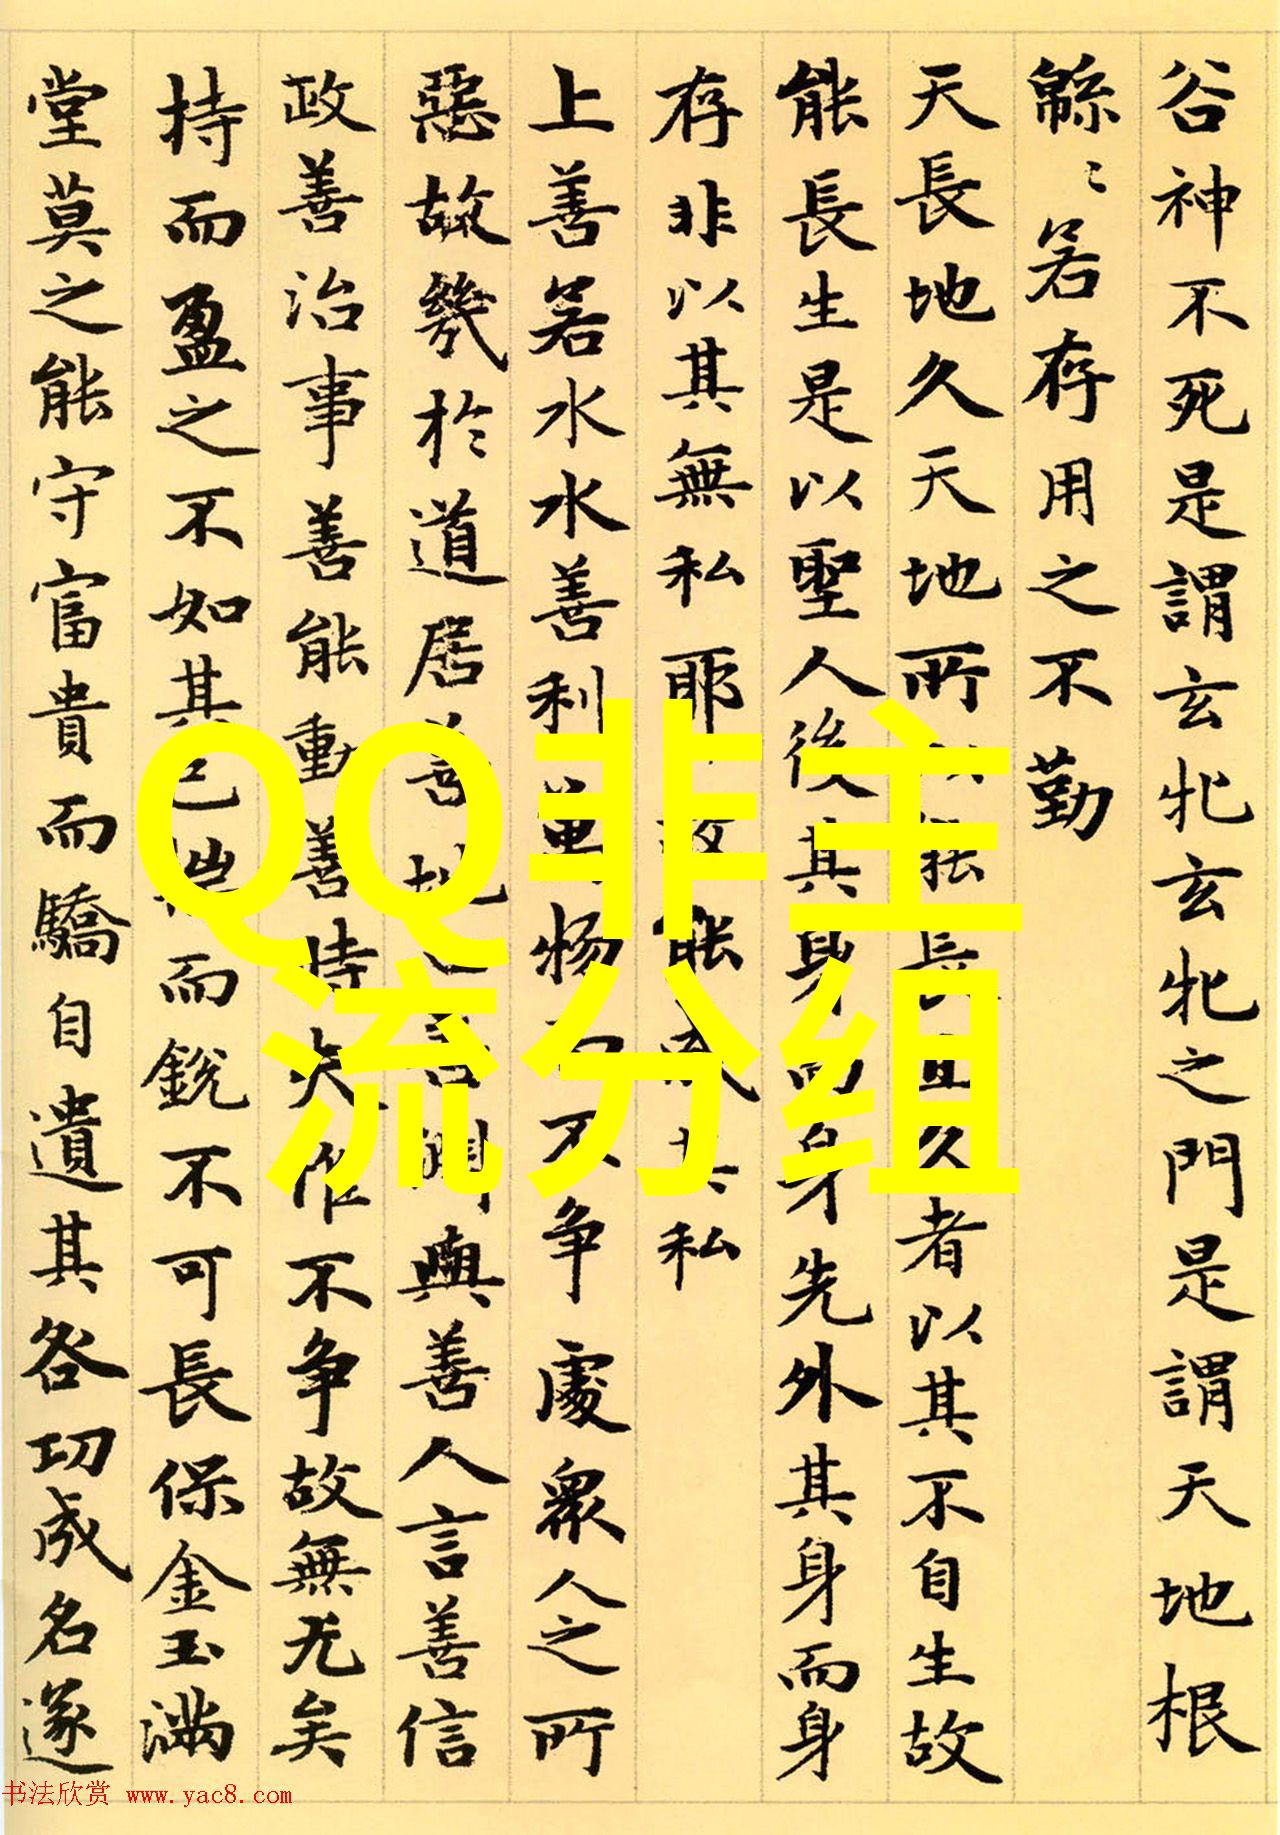 谷神不死是謂玄牝玄牝之門是謂天地根
緜〻若存用之不勤
天長地久天地所以能長且久者以其不自生故
能長生是以聖人後其身而身先外其身而身
存非以其無私耶故能成其私
上善若水水善利萬物而不争處衆人之所
惡故幾於道居善地心善淵與善人言善信
政善治事善能動善時夫惟不争故無尤矣
持而盈之不如其已揣而銳不可長保金玉滿
堂莫之能守富貴而驕自遺其咎功成名遂
QQ非主
流分组
书法欣赏 www.yac8.com